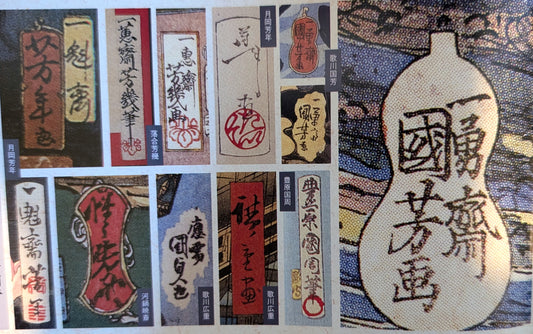 一魁齋
芳年画
月岡芳年
一蕙齋芳幾筆
落合芳幾
一蕙齋
芳幾画
月岡芳年
一勇齋
國芳画
歌川国芳
一勇齋
國芳画
一魁齋芳年
河鍋暁斎
應需
國貞画
廣重画
歌川広重
豊原国周
豊原國周筆
歌川広重
一勇齋
國芳画